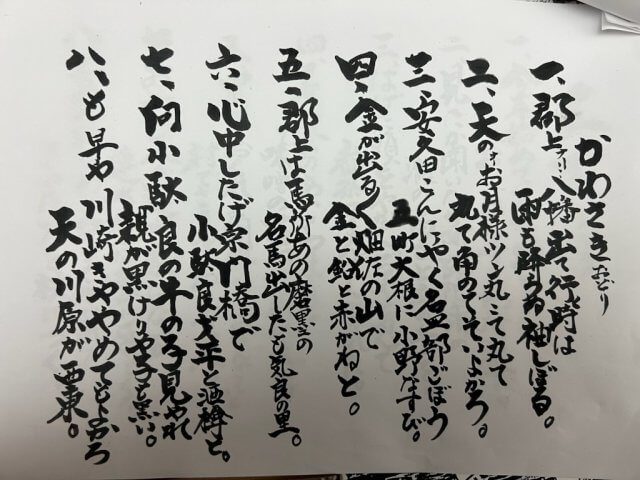 かわさきおどり
一、郡上ノナー八幡出て行く時は
雨も降らぬに袖しぼる。
二、天のナお月様ツン丸こて丸て
丸て角のてて、よかろ。
三、安久田こんにゃく名皿部ごぼう
五町大根に小野なすび。
四、金が出る〱畑佐の山で
金と鉛と赤がねと。
五、郡上は馬所あの磨墨の
名馬出したも気良の里。
六、心中したげ宗門橋で
小駄良才平と酒樽と。
七、向小駄良の牛の子見やれ
親が黒けりゃ子も黒い。
八、も早や川崎きややめてもよかろ
天の川原が西東。